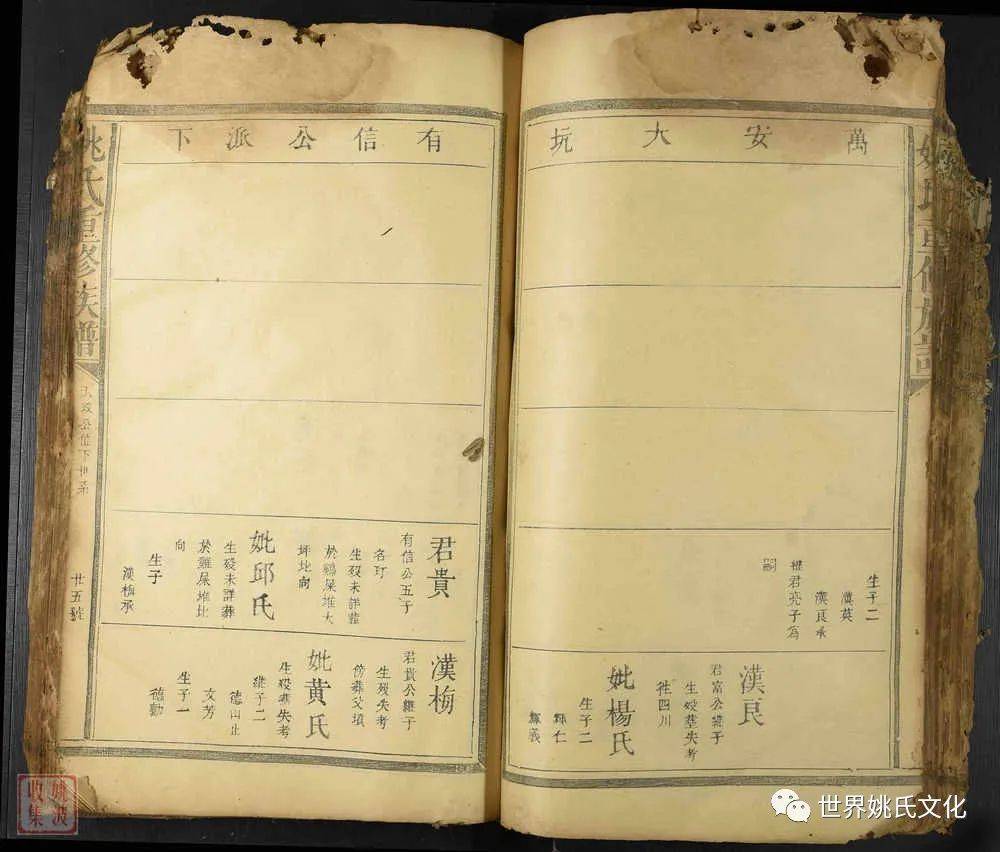 姚氏重修族譜
萬安大坑
生子二
漢英
漢良承
君亮子為
嗣
漢良
君富公繼子
生歿塟失考
徃四川
妣楊氏
生子二
輝仁
輝義
有信公派下
君貴
有信公五子
名玎
生歿未詳葬
於鷄屎堆大
坪北向
妣邱氏
生歿未詳葬
於雞屎堆北
向
生子
漢梅承
漢梅
君貴公繼子
生歿失考
傍葬父墳
妣黄氏
生歿葬失考
繼子二
德山止
文芳
生子一
德勳
姚氏重修族譜
廿五號
姚波
收集
世界姚氏文化